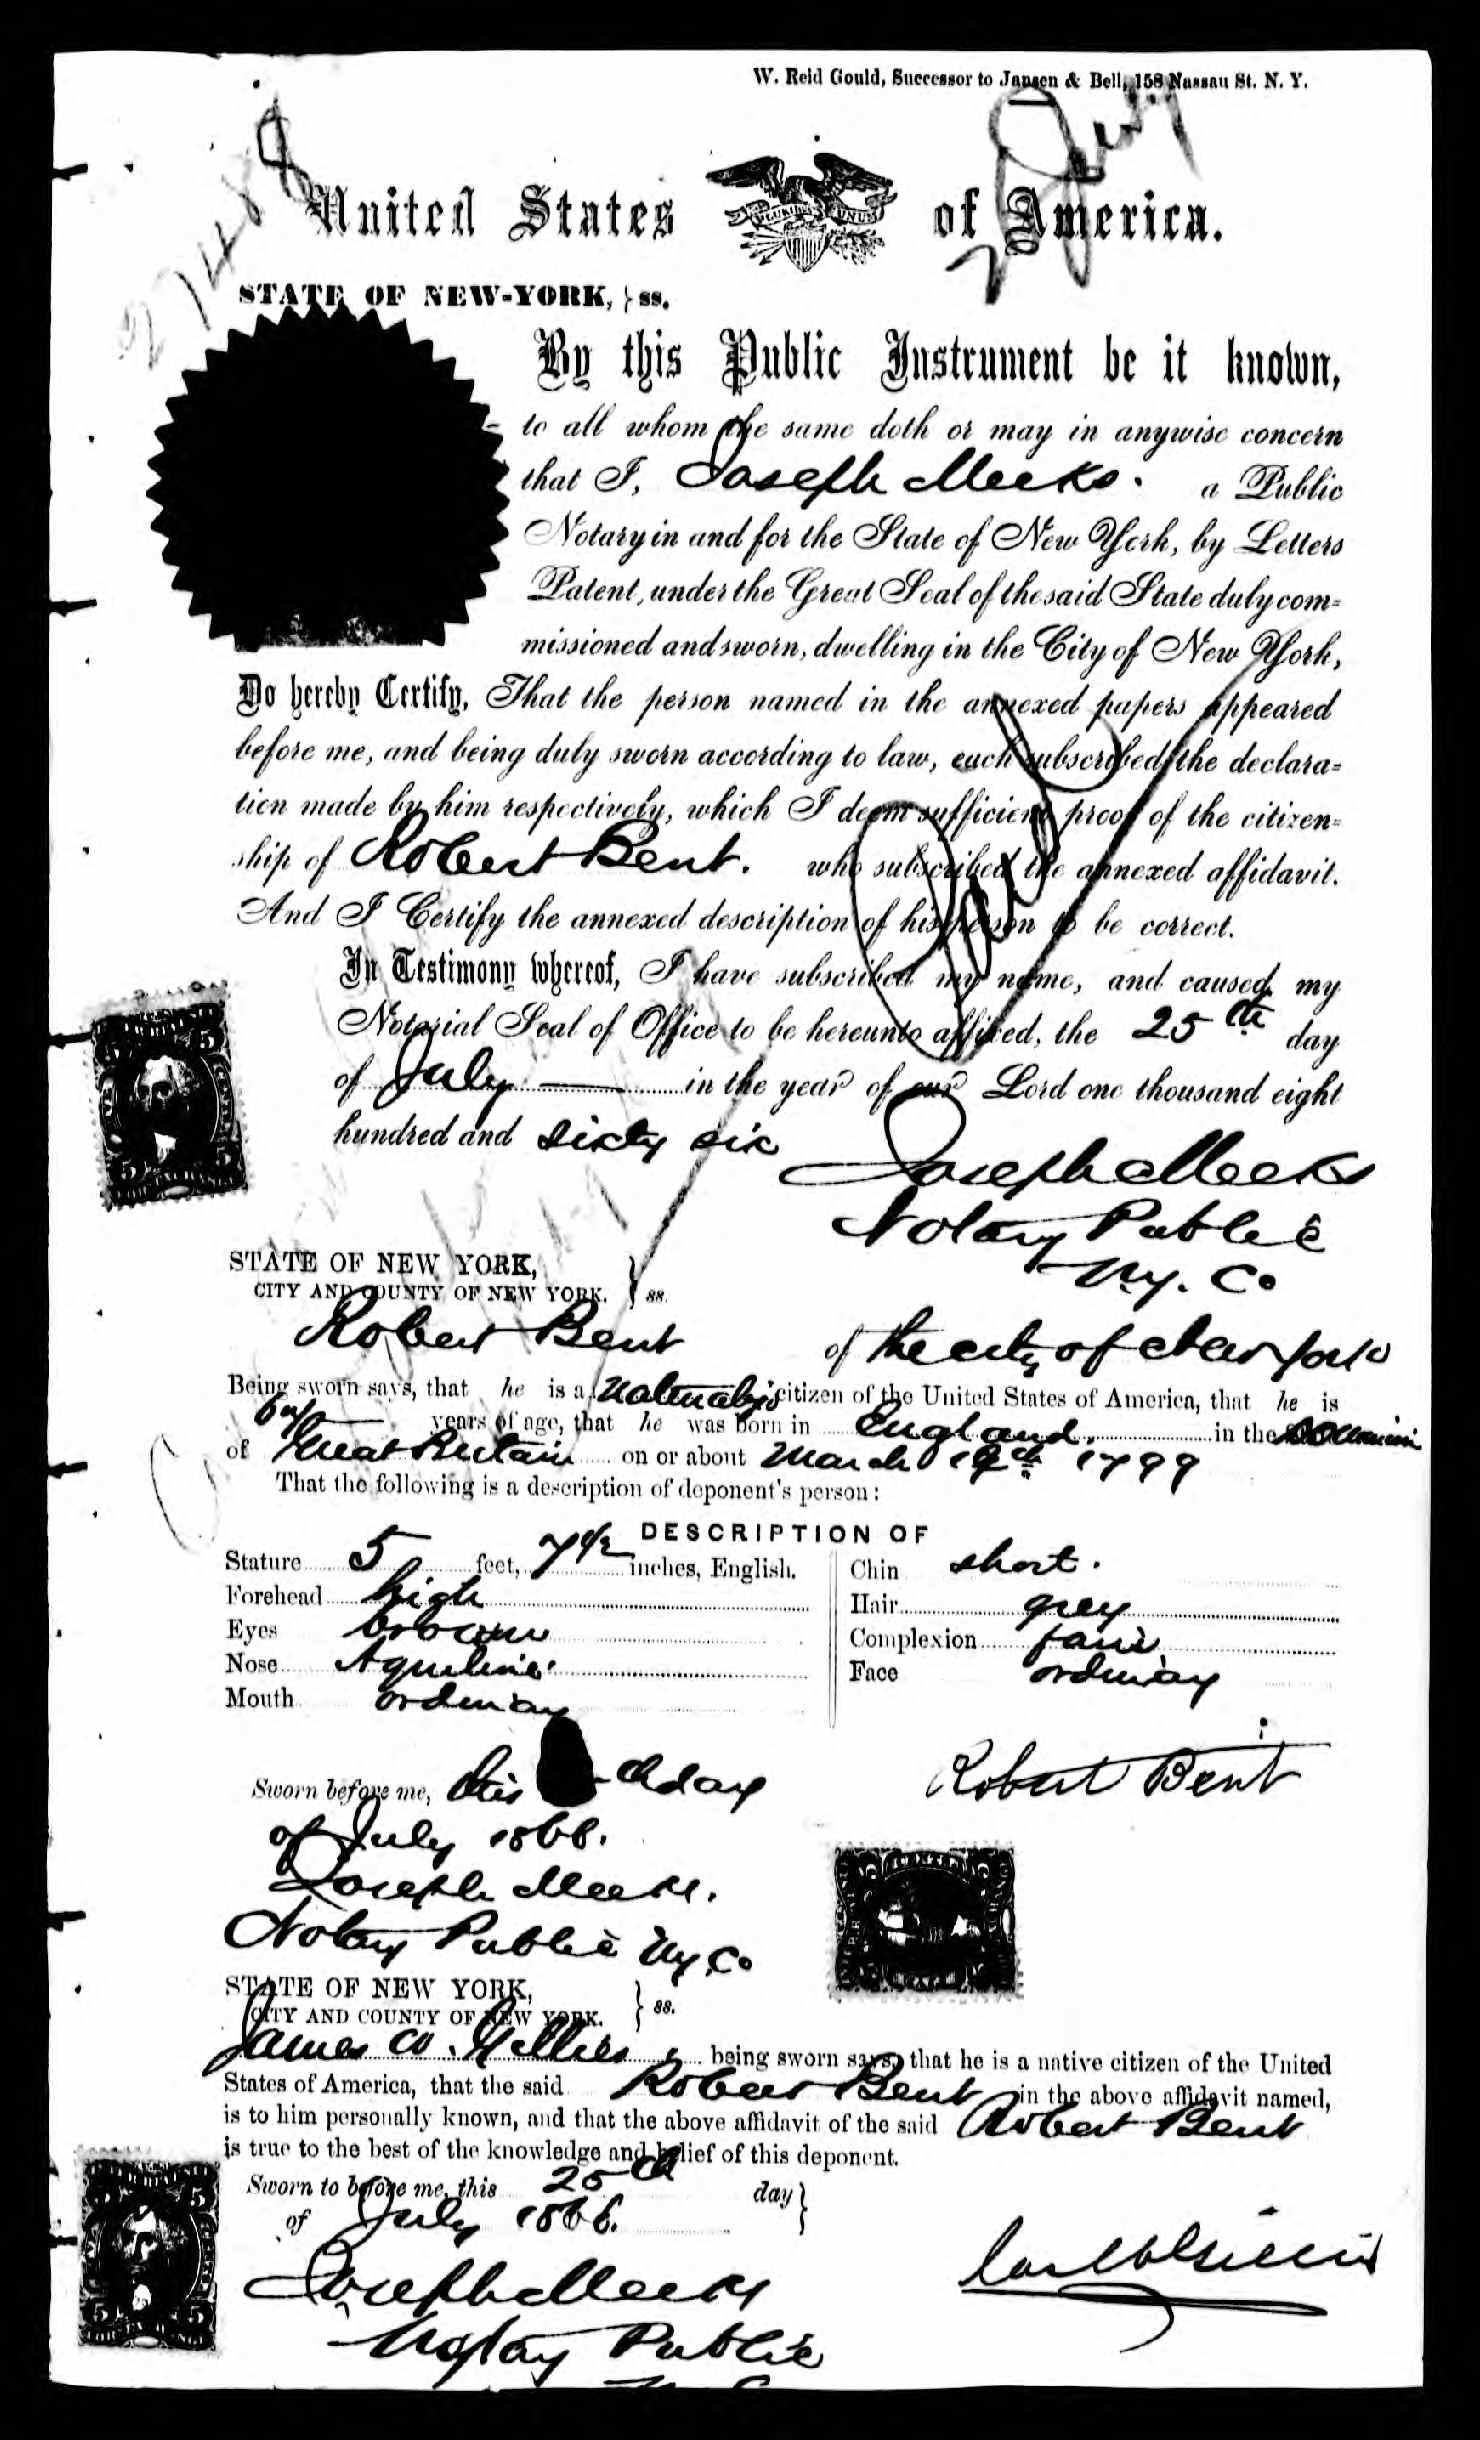 W. Reid Gould, Successor to Jansen & Bell, 158 Nassau St. N. Y.
27488
United States of America.
STATE OF NEW-YORK, } ss.
By this Public Instrument be it known,
to all whom the same doth or may in anywise concern
that I, Joseph Meeks. a Public
Notary in and for the State of New York, by Letters
Patent, under the Great Seal of the said State duly com=
missioned and sworn, dwelling in the City of New York,
Do hereby Certify, That the person named in the annexed papers appeared
before me, and being duly sworn according to law, each subscribed the declara=
tion made by him respectively, which I deem sufficient proof of the citizen=
ship of Robert Bent. who subscribed the annexed affidavit.
And I Certify the annexed description of his person to be correct.
In Testimony whereof, I have subscribed my name, and caused my
Notarial Seal of Office to be hereunto affixed, the 25th day
of July in the year of our Lord one thousand eight
hundred and sixty six
Joseph Meeks
Notary Public
N.y. Co
STATE OF NEW YORK,
CITY AND COUNTY OF NEW YORK. } ss.
Robert Bent of the city of New York
Being sworn says, that he is a citizen of the United States of America, that he is
years of age, that he was born in England. in the
of Great Britain on or about March 1799
That the following is a description of deponent's person:
DESCRIPTION OF
Stature 5 feet, 7 1/2 inches, English.
Forehead high
Eyes brown
Nose Aquiline
Mouth ordinary
Chin short.
Hair grey
Complexion fair
Face ordinary
Robert Bent
Sworn before me, this th day
of July 1866.
Joseph Meeks.
Notary Public Ny. Co
STATE OF NEW YORK,
CITY AND COUNTY OF NEW YORK. } ss.
James W. being sworn says, that he is a native citizen of the United
States of America, that the said Robert Bent in the above affidavit named,
is to him personally known, and that the above affidavit of the said Robert Bent
is true to the best of the knowledge and belief of this deponent.
Sworn to before me, this 25th day }
of July 1866.
Joseph Meeks
Notary Public